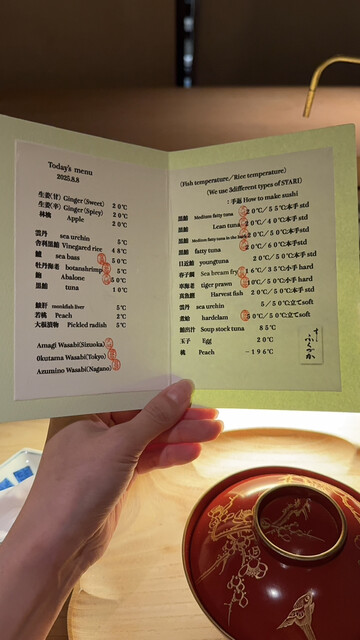 Today's menu
2025.8.8
生姜(甘) Ginger (Sweet) 20℃
生姜(辛) Ginger (Spicy) 20℃
林檎 Apple 20℃
雲丹 sea urchin 5℃
舎利 Vinegared rice 48℃
鱸 sea bass 50℃
牡丹海老 botanshrimp 5℃
鮑 Abalone 50℃
黒鮪 tuna 10℃
鮟肝 monkfish liver 5℃
若桃 Peach 2℃
大根漬物 Pickled radish 5℃
Amagi Wasabi(Sizuoka)
Okutama Wasabi(Tokyo)
Azumino Wasabi(Nagano)
(Fish temperature/Rice temperature)
(We use 3different types of STARI)
:手返 How to make sushi
黒鮪 Medium fatty tuna 20℃/55℃本手std
Lean tuna 20℃/40℃本手std
黒鮪 Medium fatty tuna in the back 20℃/50℃本手std
黒鮪 fatty tuna 20℃/60℃本手std
11近鮪 youngtuna 20℃/50℃本手std
春子鯛 Sea bream fry 16℃/35℃小手hard
車海老 tiger prawn 10℃/50℃小手hard
真魚鰹 Harvest fish 20℃/50℃本手std
雲丹 sea urchin 5/50℃立てsoft
煮蛤 hardclam 50℃/50℃立てsoft
鮪出汁 Soup stock tuna 85℃
玉子 Egg 20℃
桃 Peach −196℃